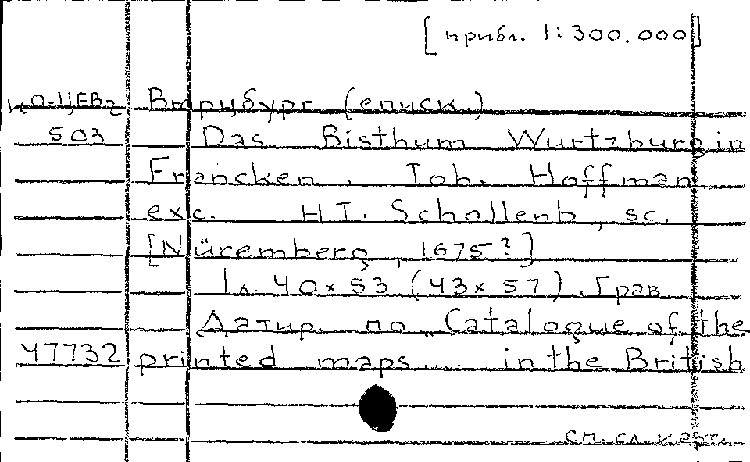 [прибл. 1:300.000]
Вюрцбург (еписк.)
503 Das Bisthum Wurtzburg in
Francken. Joh. Hoffman
exc. H. I. Schollenb, sc.
[Nüremberg, 1675?]
1 л. 40 x 53 (43 x 57). Грав
Датир. по Catalogue of the
47732 printed maps... in the British
см. сл. карт.